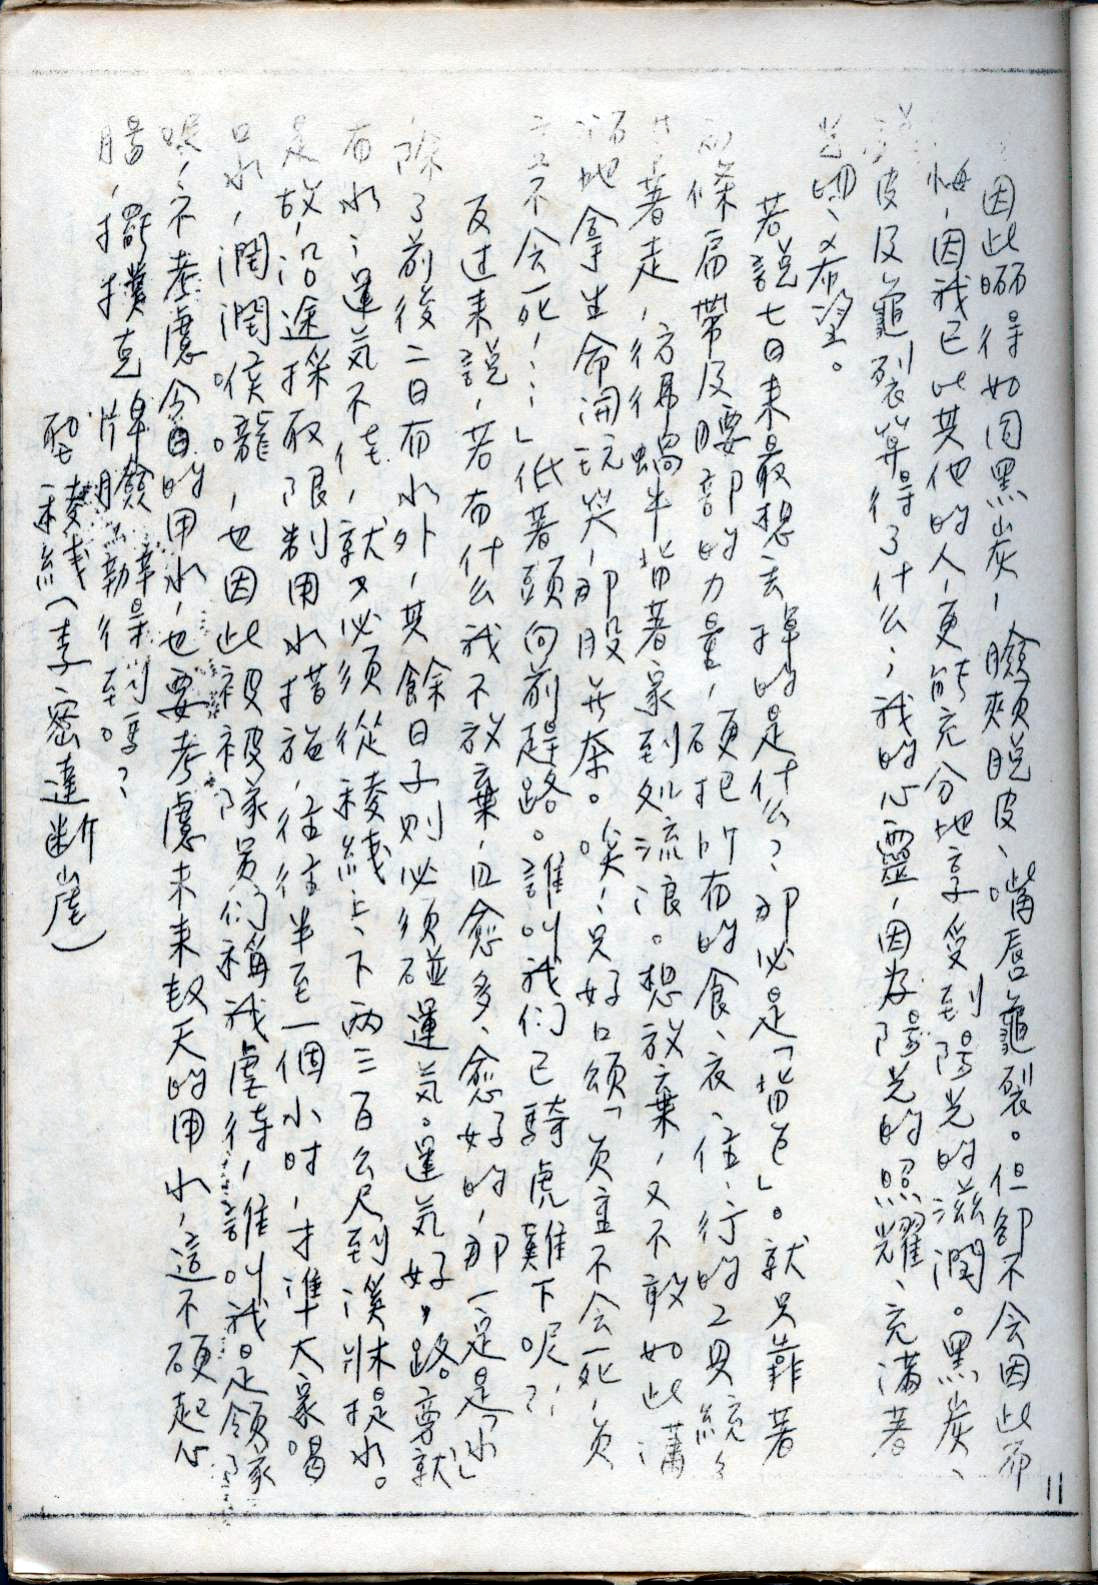 因此晒得如同黑炭，臉頰脫皮、嘴唇龜裂。但卻不会因此而
悔，因我已比其他的人，更能充分地享受到陽光的滋潤。黑炭、
皮及龜裂算得了什么；我的心靈，因为陽光的照耀、充滿著
切、希望。
若說七日来最想去掉的是什么？那必是「背包」。就只靠著
條扁帶及腰部的力量，硬把所有的食、衣、住、行的工具統統
著走，彷彿蝸牛背著家到処流浪。想放棄，又不敢如此瀟
地拿生命開玩笑，那股無奈。唉！只好口頌「負重不会死，負
不会死，……」低著頭向前趕路。誰叫我们已騎虎難下呢？！
反过来說，若有什么我不放棄，且愈多、愈好的，那一定是「水」
除了前後二日有水外，其餘日子則必須碰運氣。運氣好，路旁就
有水；運氣不佳，就必須從稜线上、下兩三百公尺到溪牀提水。
是故，沿途採取限制用水措施，往往半至一個小时，才準大家喝
口水，潤潤侯嚨，也因此被被隊员们稱我虐待，誰叫我是領隊
呢，不考慮今日的用水，也要考慮未来数天的用水，這不硬起心
腸，擺撲克牌臉，辦得到嗎？
稜线(李密達断崖)
11